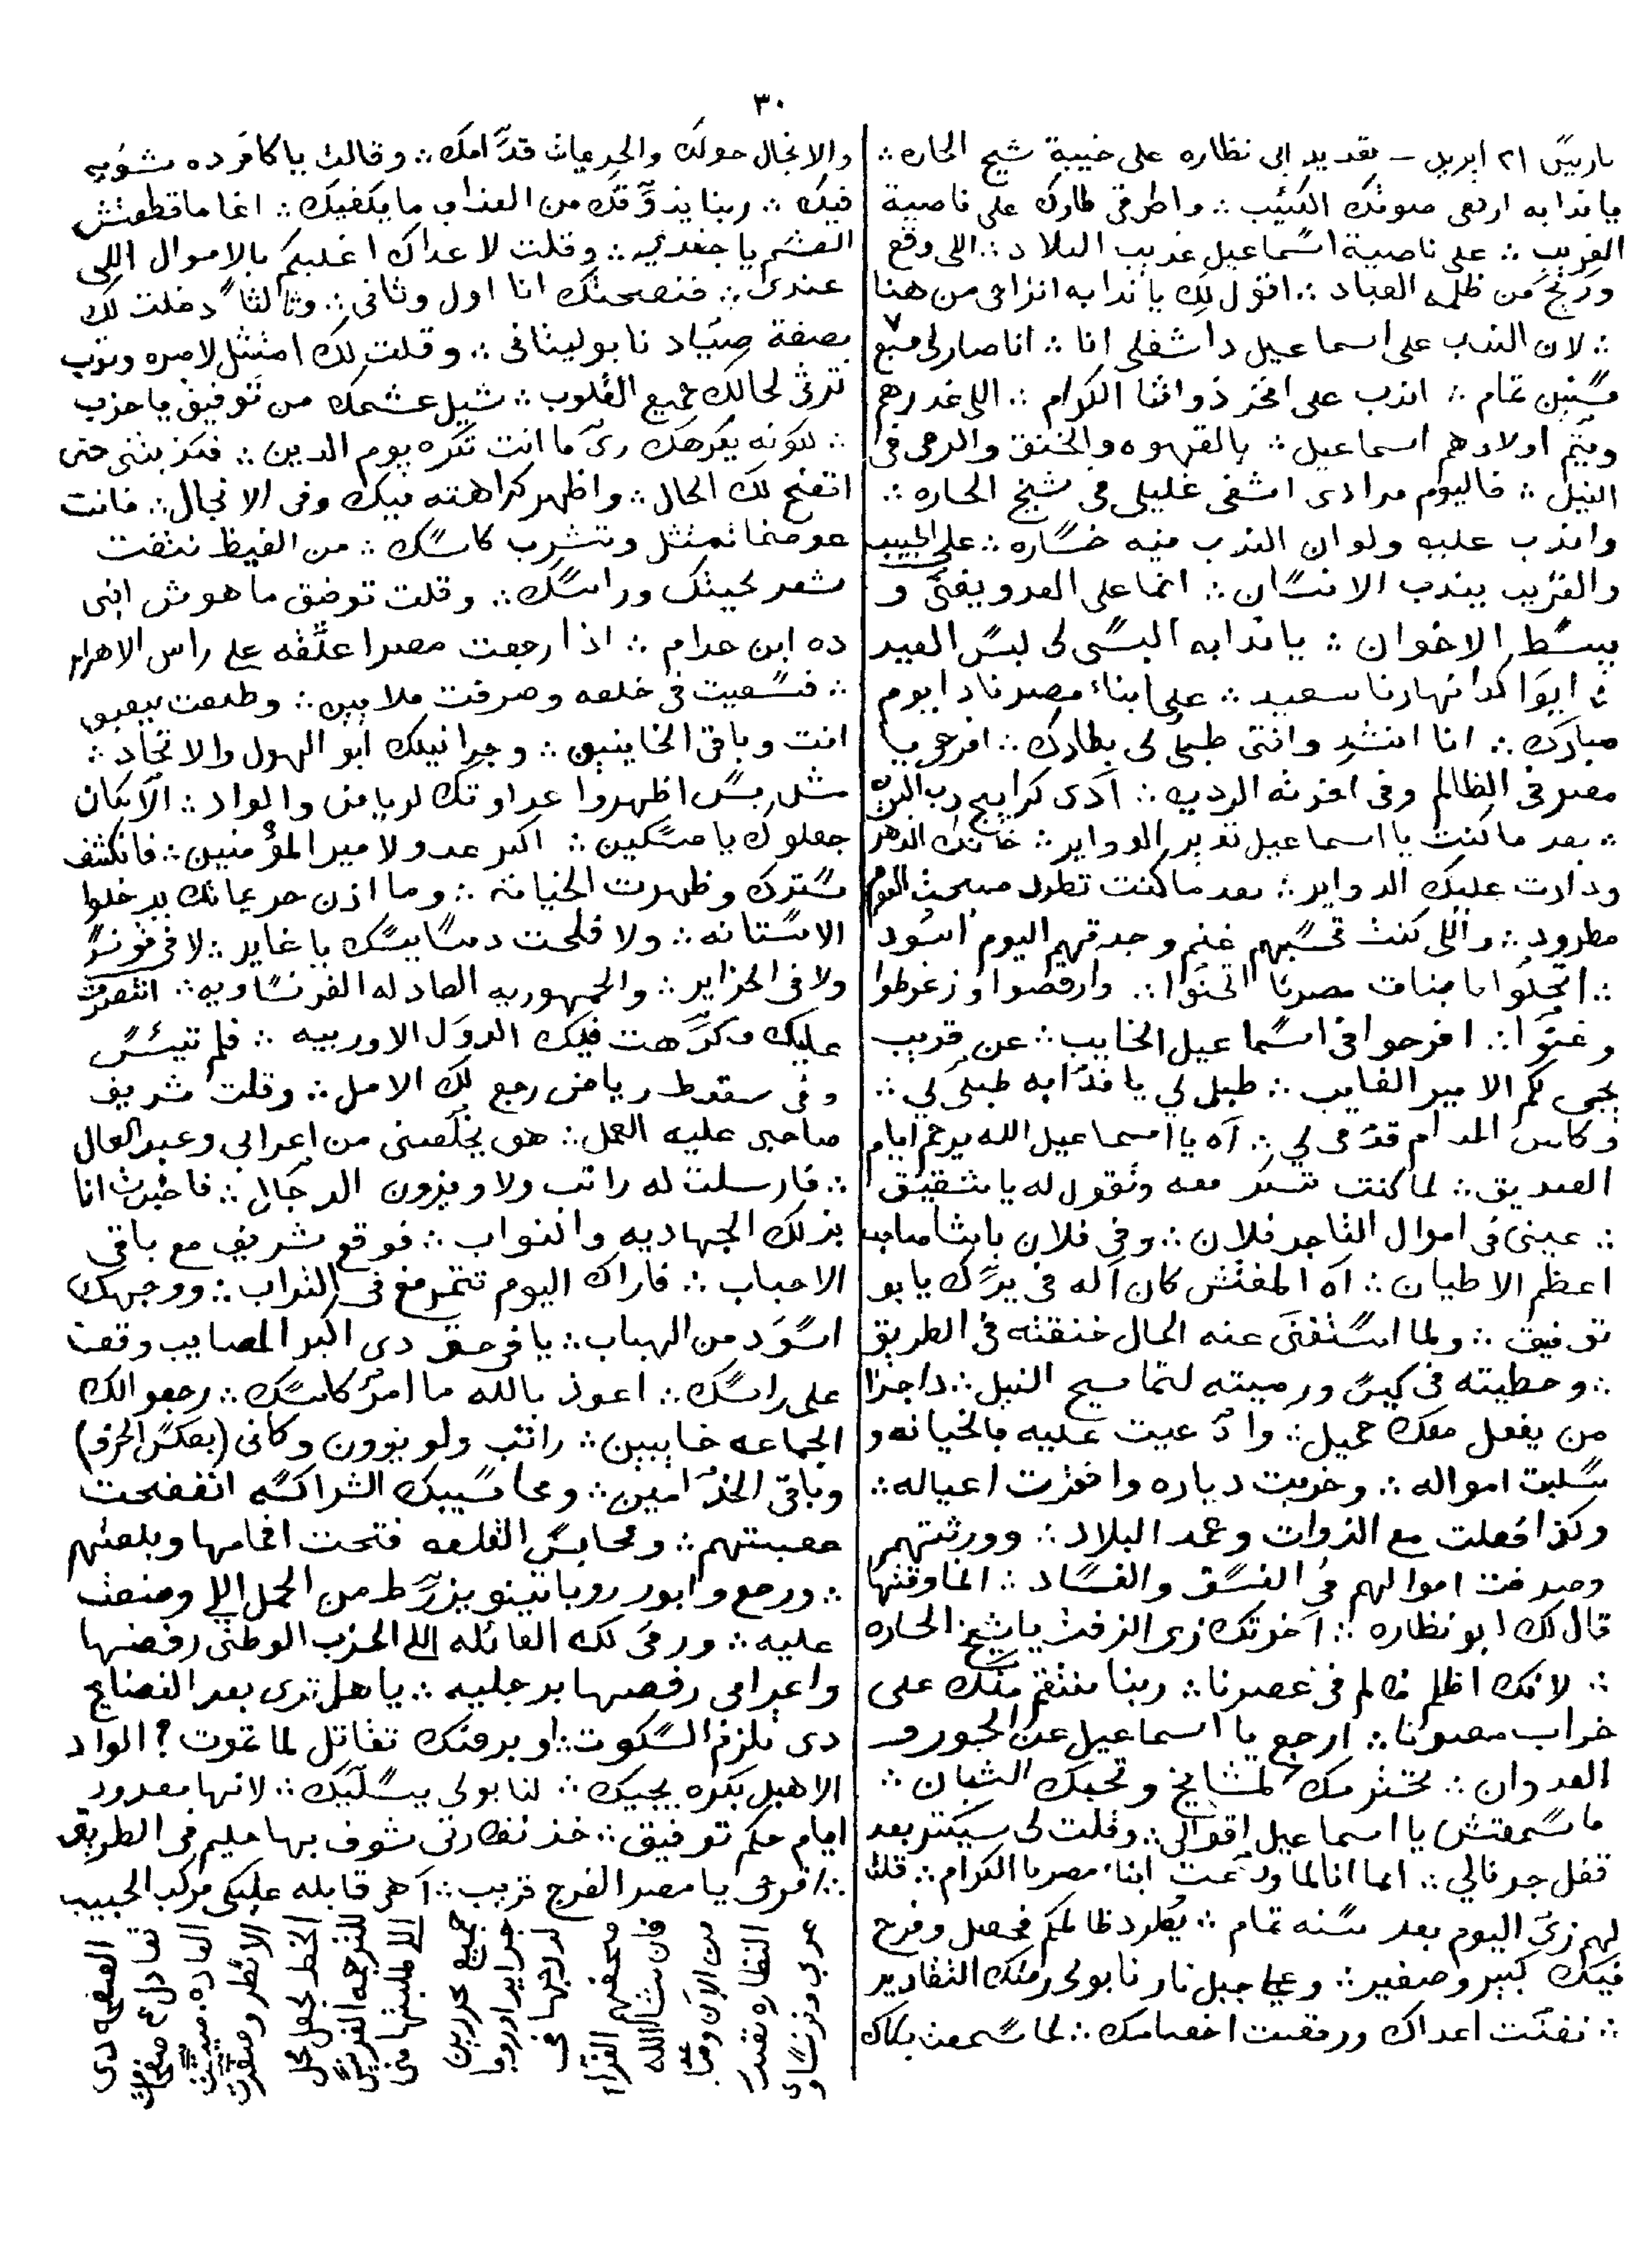 ٣٠
باريس ٢١ ابريل — تقديد ابى نظاره على خيبة شيخ الحاره ∴
يا ندابه ارفعى صوتك الكئيب ∴ واطرقى طارك على ناصية
الغريب ∴ على ناصية اسماعيل غريب البلاد ∴ اللى وقع
من ظلمه العباد ∴ اقول لك يا ندابه انزاحى من هنا
∴ لان الندب على اسماعيل دا شغلى انا ∴ انا صار لى سبع
سنين تمام ∴ اندب على افخر ذواتنا الكرام ∴ اللى غدرهم
ويتم اولادهم اسماعيل ∴ بالقهوه والخنق والرمى فى
النيل ∴ فاليوم مرادى اشفى غليلى فى شيخ الحاره ∴
واندب عليه ولو ان الندب فيه خساره ∴ على الحبيب
والقريب يندب الانسان ∴ انما على العدو يغنى و
يبسط الاخوان ∴ يا ندابه البسى لى لبس العيد
∴ ايوا كدا نهارنا سعيد ∴ على ابناء مصرنا دا يوم
مبارك ∴ انا انشد وانتى طبلى لى بطارك ∴ افرحو يا
مصر فى الظالم وفى اخرته الرديه ∴ آدى كرابيج رب البريه
∴ بعد ما كنت يا اسماعيل تدير الدواير ∴ خانك الدهر
ودارت عليك الدواير ∴ بعد ما كنت تطرد صبحت اليوم
مطرود ∴ واللى كنت تحسبهم غنم وجدتهم اليوم اسود
∴ اتجلوا يا بنات مصرنا اتحنوا ∴ وارقصوا وزغرطوا
وغنوا ∴ افرحوا فى اسماعيل الخايب ∴ عن قريب
يجى لكم الامير الغايب ∴ طبلى لي يا ندابه طبلى لي ∴
وكاس المدام قدمى لي ∴ آه يا اسماعيل الله يرحم ايام
الصديق ∴ لما كنت تسكر معه وتقول له يا شقيق
∴ عينى فى اموال التاجر فلان ∴ وفى فلان باشا صاحب
اعظم الاطيان ∴ آه المفتش كان آله فى يدك يا بو
توفيق ∴ ولما استغنى عنه الحال خنقته فى الطريق
∴ وحطيته فى كيس ورميته لتماسيح النيل ∴ دا جزا
من يفعل معك جميل ∴ وادعيت عليه بالخيانه و
سلبت امواله ∴ وخربت دياره واخذت اعياله ∴
وكذا فعلت مع الذوات وعمد البلاد ∴ وورثتهم
وصرفت اموالهم فى الفسق والفساد ∴ انما وقتها
قال لك ابو نظاره ∴ آخرتك زى الزفت يا شيخ الحاره
∴ لانك اظلم ظالم فى عصرنا ∴ ربنا ينتقم منك على
خراب مصرنا ∴ ارجع يا اسماعيل عن الجور و
العدوان ∴ تحترمك المشايخ وتحبك الشبان ∴
ما سمعتش يا اسماعيل اقوالى ∴ وقلت لى سيكتر بعد
قفل جرنالي ∴ انما انا لما ودعت ابناء مصرنا الكرام ∴ قلت
لهم زى اليوم بعد سنه تمام ∴ يطرد ظالمكم فحصل وفرح
فيك كبير وصغير ∴ وعلى جبل نار نابولى رمتك التقادير
∴ نفتت اعداك ورقصت اخصامك ∴ لما سمعت بكاك
والانجال حولك والحريمات قدامك ∴ وقالت يا كافر ده شويه
فيك ∴ ربنا يذوقك من العذاب ما يكفيك ∴ انما ما قطعتش
العشم يا جغدى ∴ وقلت لاعداك اغلبكم بالاموال اللى
عندى ∴ فنصحتك انا اول وثانى ∴ وثالثا دخلت لك
بصفة صياد نابوليتانى ∴ وقلت لك امتثل لامره وتوب
ترق لحالك جميع القلوب ∴ شيل عشمك من توفيق يا حزب
∴ لكونه يكرهك زى ما انت تكره يوم الدين ∴ فكذبتنى حتى
اتضح لك الحال ∴ واظهر كراهته فيك وفى الانجال ∴ فانت
عوضما تمتثل وتشرب كاسك ∴ من الغيظ نتفت
شعر لحيتك وراسك ∴ وقلت توفيق ما هوش ابنى
ده ابن حرام ∴ اذا رجعت مصر اعلقه على راس الاهرام
∴ فسعيت فى خلعه وصرفت ملايين ∴ وطلعت بيعبو
انت وباقى الخاينين ∴ وجرانيلك ابو الهول والاتحاد ∴
مثل بس اظهروا عداوتك لرياض والواد ∴ الا كان
جعلوك يا مسكين ∴ اكبر عدو لامير المؤمنين ∴ فانكشف
سترك وظهرت الخيانة ∴ وما اذن حريماتك يدخلوا
الاستانه ∴ ولا فلحت دسايسك يا غاير ∴ لا فى تونس
ولا فى الجزاير ∴ والجمهوريه العادله الفرنساويه ∴ انتصرت
عليك وكرهت فيك الدول الاوربيه ∴ فلم تيئس
وفى سقوط رياض رجع لك الامل ∴ وقلت شريف
صاحبى عليه العمل ∴ هو يخلصنى من اعرابى وعبد العال
∴ فارسلت له راتب ولاويزون الدجال ∴ فاخبرت انا
بذلك الجهاديه والنواب ∴ فوقع شريف مع باقى
الاحباب ∴ فاراك اليوم تتمرمغ فى التراب ∴ ووجهك
اسود من الهباب ∴ يا فرحتى دى اكبر المصايب وقعت
على راسك ∴ اعوذ بالله ما امر كاسك ∴ رجعوا لك
الجماعه خايبين ∴ راتب ولويزون وكانى (بعكس الحرف)
وباقى الخدامين ∴ ومحاسيبك الشراكسه اتفضحت
عصبتهم ∴ ومحابس القلعه فتحت افمامها وبلعتهم
∴ ورجع وابور روباتينو يزرط من الحمل اللي وضعت
عليه ∴ ورمى لك العائله اللى الحزب الوطنى رفضها
واعرابى رفصها برجليه ∴ يا هل ترى بعد الفضايح
دى تلزم السكوت ∴ او برضك تقاتل لما تموت ? الواد
الاهبل بكره يجيك ∴ لنابولى يسليك ∴ لانها معدود
ايام حكم توفيق ∴ خذ نظارتى شوف بها حليم فى الطريق
∴ افرحى يا مصر الفرج قريب ∴ آهى قابله عليكى مركب الحبيب
الصفحه دى
تعادل ٤ صفحات
العاده
الانظر وصغرت
الخط لجعل محل
للترجمه الفرنسيه
اللى طلبتها منى
جميع محررين
جرايد اوروبا
لدرجها فى
صحفهم الغرا
فان شا الله
من الان وصاعد
النظاره تصدر
عربى وفرنساوى